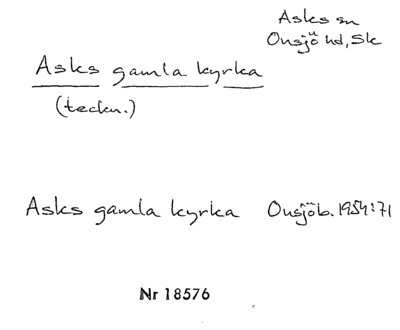 Asks sn
Onsjö hd, Sk
Asks gamla kyrka
(teckn.)
Asks gamla kyrka Onsjöb. 1954:71
Nr 18576